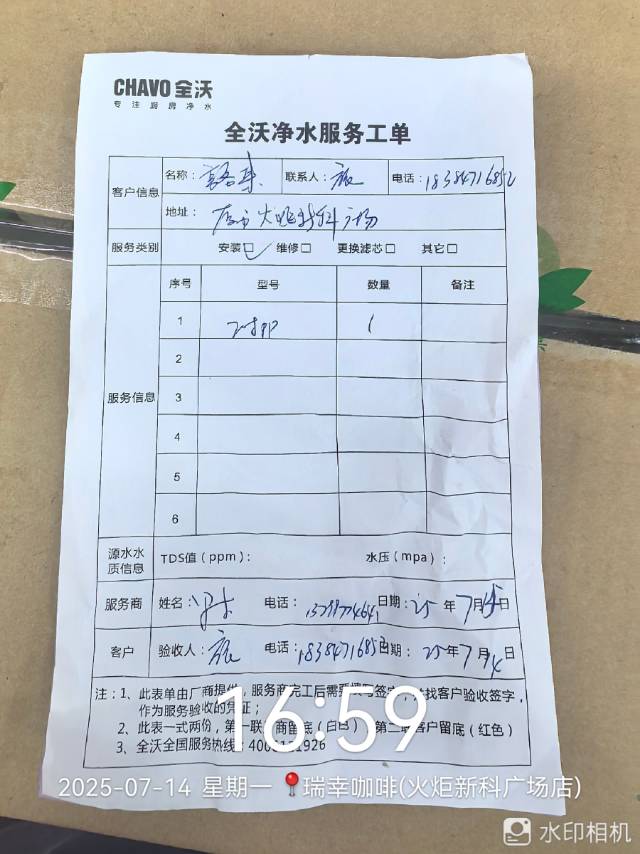 CHAVO 全沃
专注厨房净水
全沃净水服务工单
客户信息 名称： 联系人： 电话：18384716852
地址： 火炬新科广场
服务类别 安装☑ 维修□ 更换滤芯□ 其它□
服务信息 序号 型号 数量 备注
1 1
2
3
4
5
6
源水水质信息 TDS值（ppm）： 水压（mpa）：
服务商 姓名： 电话： 日期：25 年 7 月 日
客户 验收人： 电话：18384716852 日期：25 年 7 月 14 日
注：1、此表单由厂商提供，服务商完工后需要填写签字，并找客户验收签字，
作为服务验收的凭证；
2、此表一式两份，第一联 商留底（白色），第二联客户留底（红色）
3、全沃全国服务热线：
16:59
2025-07-14 星期一 瑞幸咖啡(火炬新科广场店)
水印相机